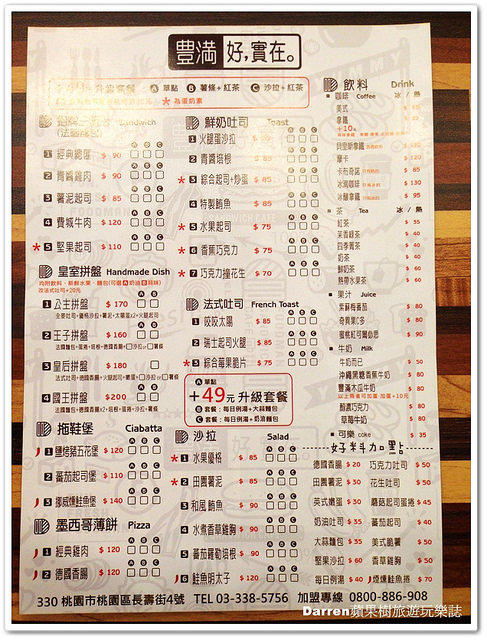 豐滿 好,實在。
升級套餐 A 單點 B 薯條+紅茶 C 沙拉+紅茶
* 為蛋奶素
Sandwich
1 經典總匯 $ 90
2 青醬雞肉 $ 90
3 薯泥起司 $ 85
4 費城牛肉 $ 120
* 5 堅果起司 $ 110
皇室拼盤 Handmade Dish
1 公主拼盤 $ 170
2 王子拼盤 $ 160
3 皇后拼盤 $ 180
4 國王拼盤 $200
拖鞋堡 Ciabatta
1 鹽焙豬五花堡 $ 120
2 蕃茄起司堡 $ 110
3 挪威燻鮭魚堡 $ 140
墨西哥薄餅 Pizza
1 經典雞肉 $ 120
2 德國香腸 $ 120
鮮奶吐司 Toast
1 火腿蛋沙拉
2 青醬培根 $ 85
* 3 綜合起司+炒蛋 $ 85
4 特製鮪魚 $ 85
* 5 水果起司 $ 75
* 6 香蕉巧克力 $ 75
* 7 巧克力撞花生 $ 70
法式吐司 French Toast
1 皎皎太陽 $ 85
2 瑞士起司火腿 $ 85
* 3 綜合莓果脆片 $ 75
A 單點
+49元 升級套餐
套餐:每日例湯+大蒜麵包
套餐:每日例湯+奶油麵包
沙拉 Salad
* 1 水果優格 $ 85
* 2 田園薯泥 $ 85
3 和風鮪魚 $ 90
4 水煮香草雞胸 $ 90
5 蕃茄羅勒培根 $ 90
6 鮭魚明太子 $ 120
飲料 Drink
咖啡 Coffee 冰 / 熱
美式
拿鐵
+10元
摩卡 $ 120
卡布奇諾 $ 85
冰滴咖啡 $ 130
冰釀拿鐵 $ 95
茶 Tea 冰 / 熱
紅茶 $ 35
茉香綠茶 $ 40
四季青茶 $ 40
奶茶 $ 40
鮮奶茶 $ 60
熱帶水果茶 $ 60
果汁 Juice
紫蘇梅番茄 $ 80
奇異果C多 $ 80
蜜桃紅可爾必思 $ 90
牛奶 Milk
牛奶而已 $ 50
沖繩黑糖香蕉牛奶 $ 80
豐滿木瓜牛奶 $ 80
鮮濃巧克力 $ 80
草莓牛奶 $ 80
可樂 coke $ 35
好料加點
德國香腸 $ 20 巧克力吐司 $ 50
田園薯泥 $ 30 花生吐司 $ 50
英式嫩蛋 $ 30 蘑菇起司蛋捲 $ 45
奶油吐司 $ 35 蕃茄起司 $ 40
大蒜麵包 $ 35 美式脆薯 $ 50
堅果沙拉 $ 60 香草雞胸 $ 50
每日例湯 $ 40 煙燻鮭魚捲 $ 70
330 桃園市桃園區長壽街4號 TEL 03-338-5756 加盟專線 0800-886-908
Darren蘋果樹旅遊玩樂誌